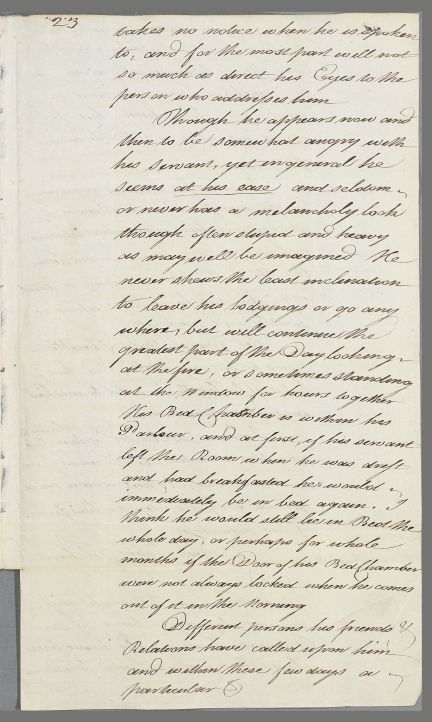 23
takes no notice when he is spoken
to, and for the most part will not
so much as direct his Eyes to the
person who addresses him
Though he appears now and
then to be somewhat angry with
his servant, yet in general he
seems at his ease and seldom
or never has a melancholy look
though often stupid and heavy
as may well be imagined He
never shews the least inclination
to leave his lodgings or go any
where, but will continue the
greatest part of the Day looking
at the fire, or sometimes standing
at the Window for hours together
His Bed Chamber is within his
Parlour, and at first, if his servant
left the Room when he was drest
and had breakfasted he would
immediately be in bed again. I
think he would still lie in Bed the
whole day, or perhaps for whole
months if the Door of his Bed Chamber
were not always locked when he comes
out of it in the Morning
Different persons his friends &
Relations have called upon him
and within these few days a
particular